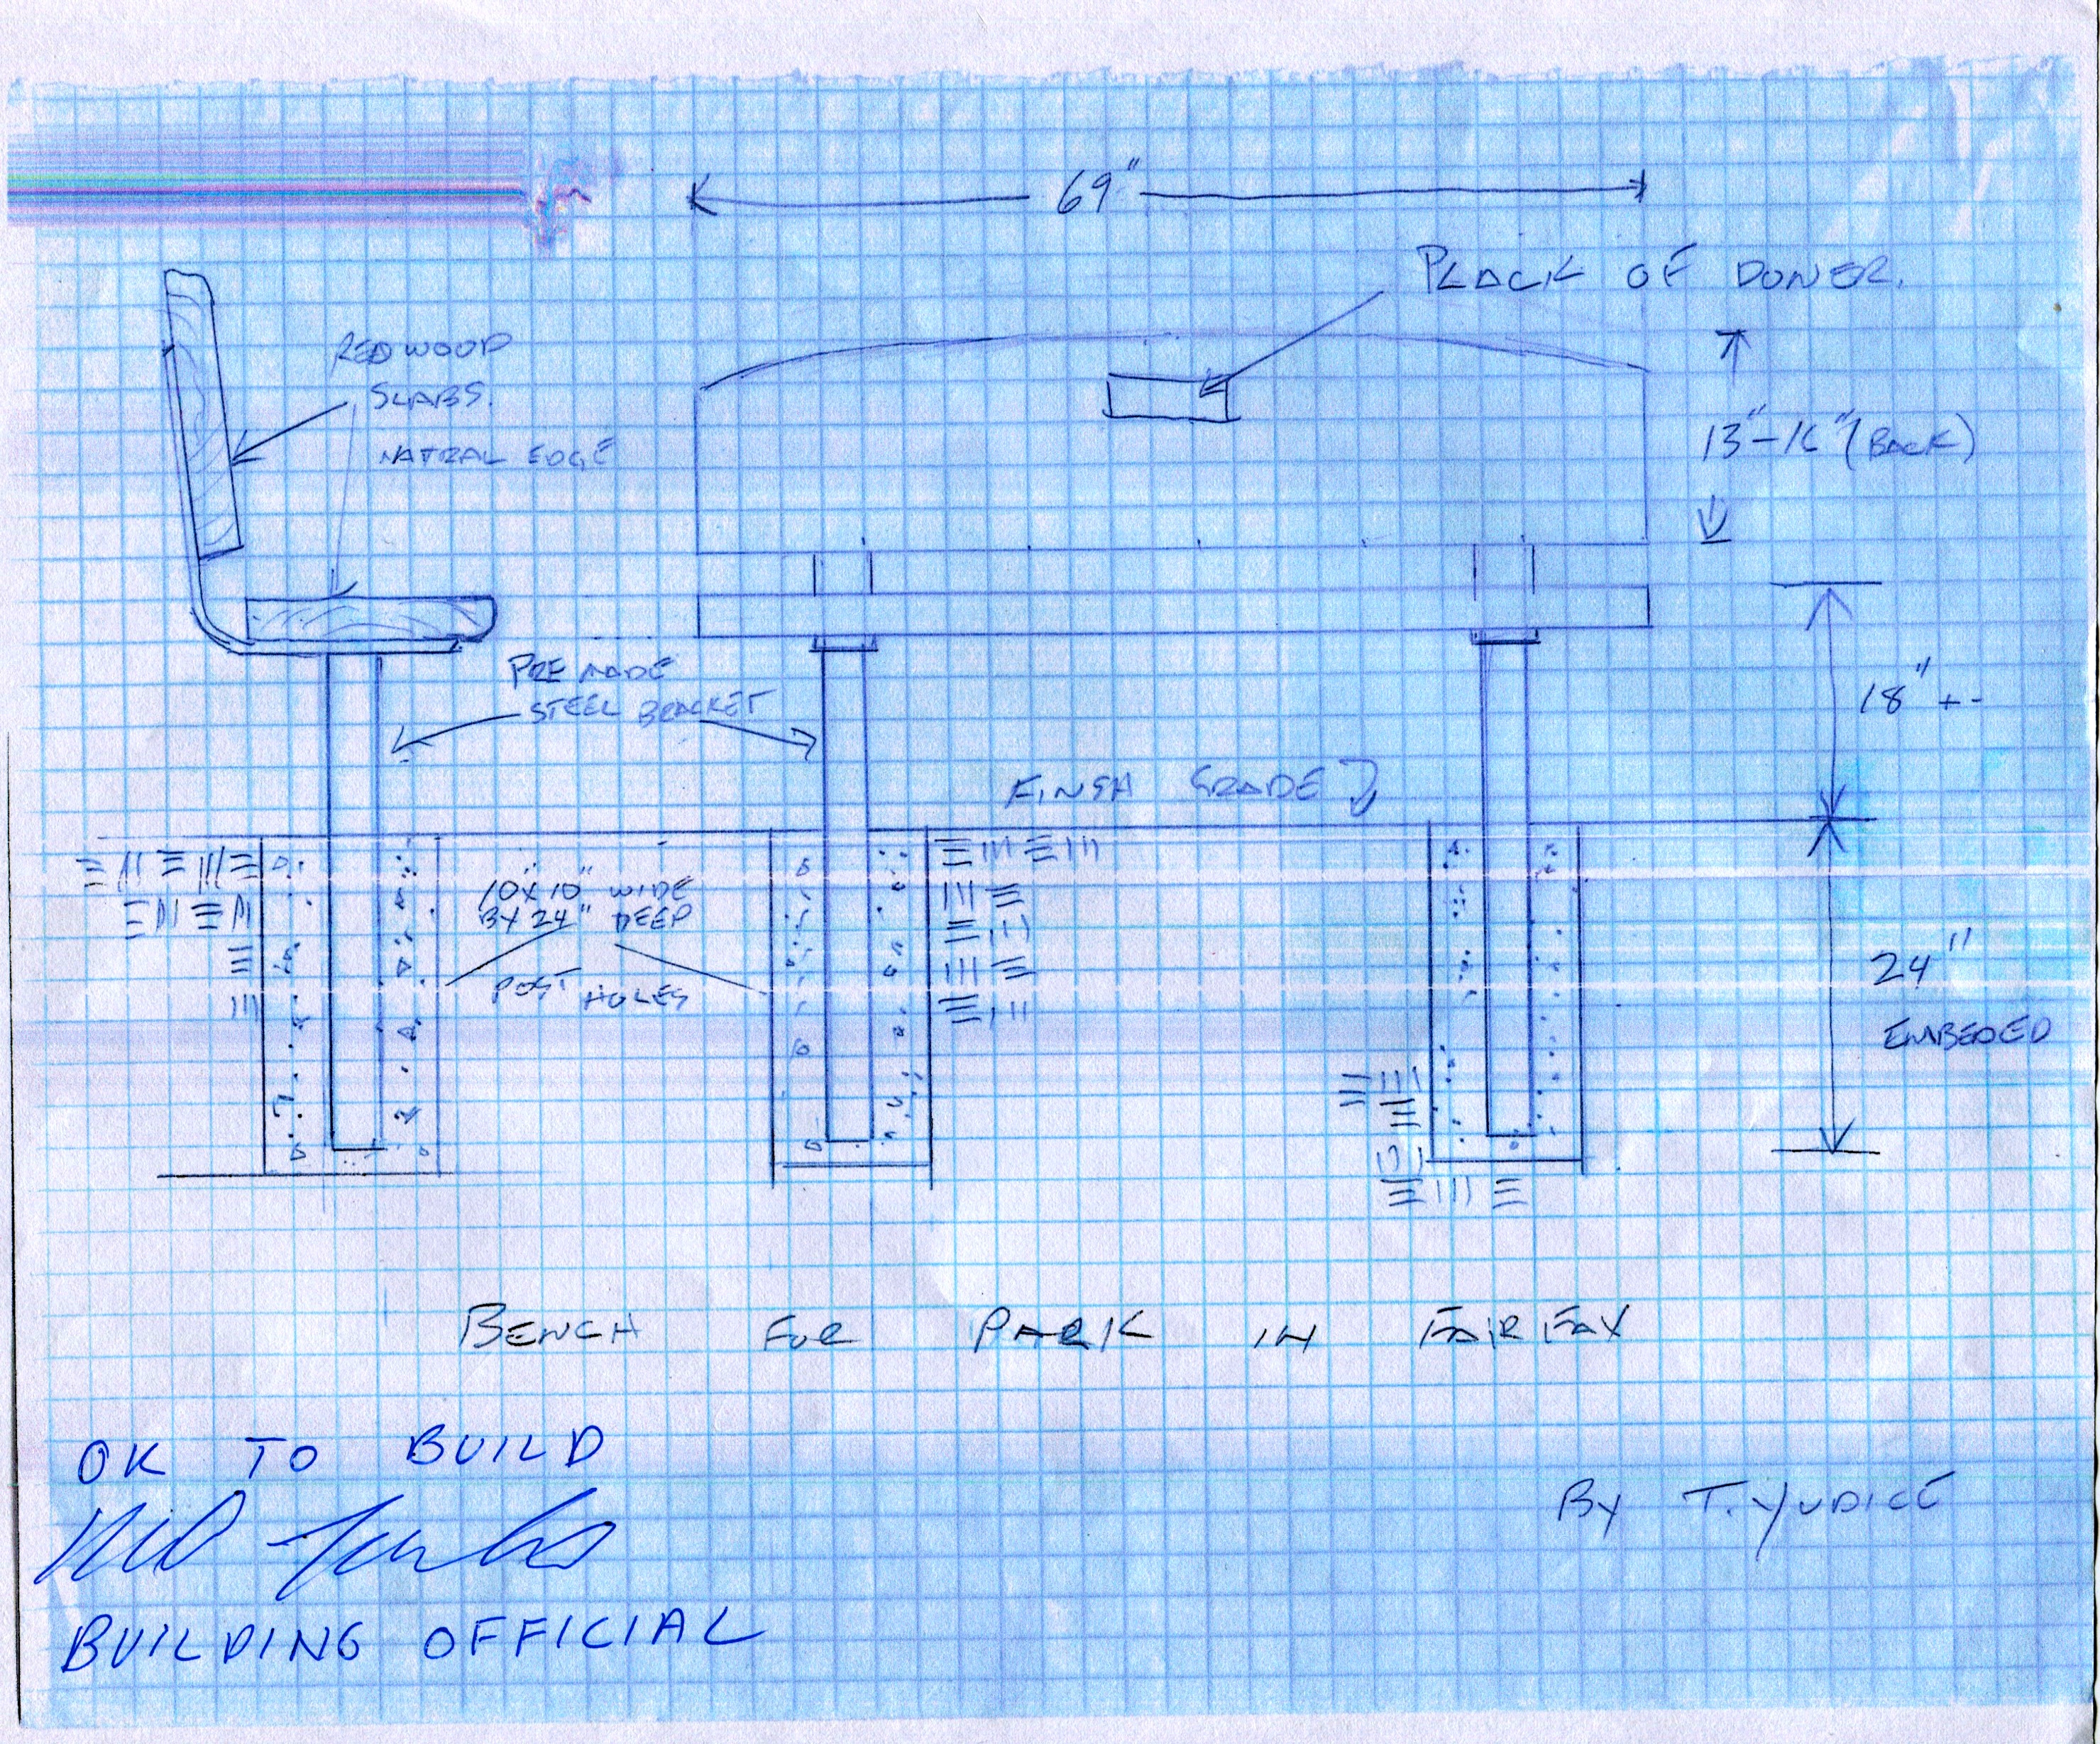 69"
PLACK OF DONER.
REDWOOD
SLABS.
NATRAL EDGE
13"-16" (BACK)
PRE MADE
STEEL BRACKET
18" +-
FINSH GRADE
10"X10" WIDE
BY 24" DEEP
POST HOLES
24"
EMBEDED
BENCH FOR PARK IN FAIRFAX
OK TO BUILD
BY T. YUDICE
BUILDING OFFICIAL